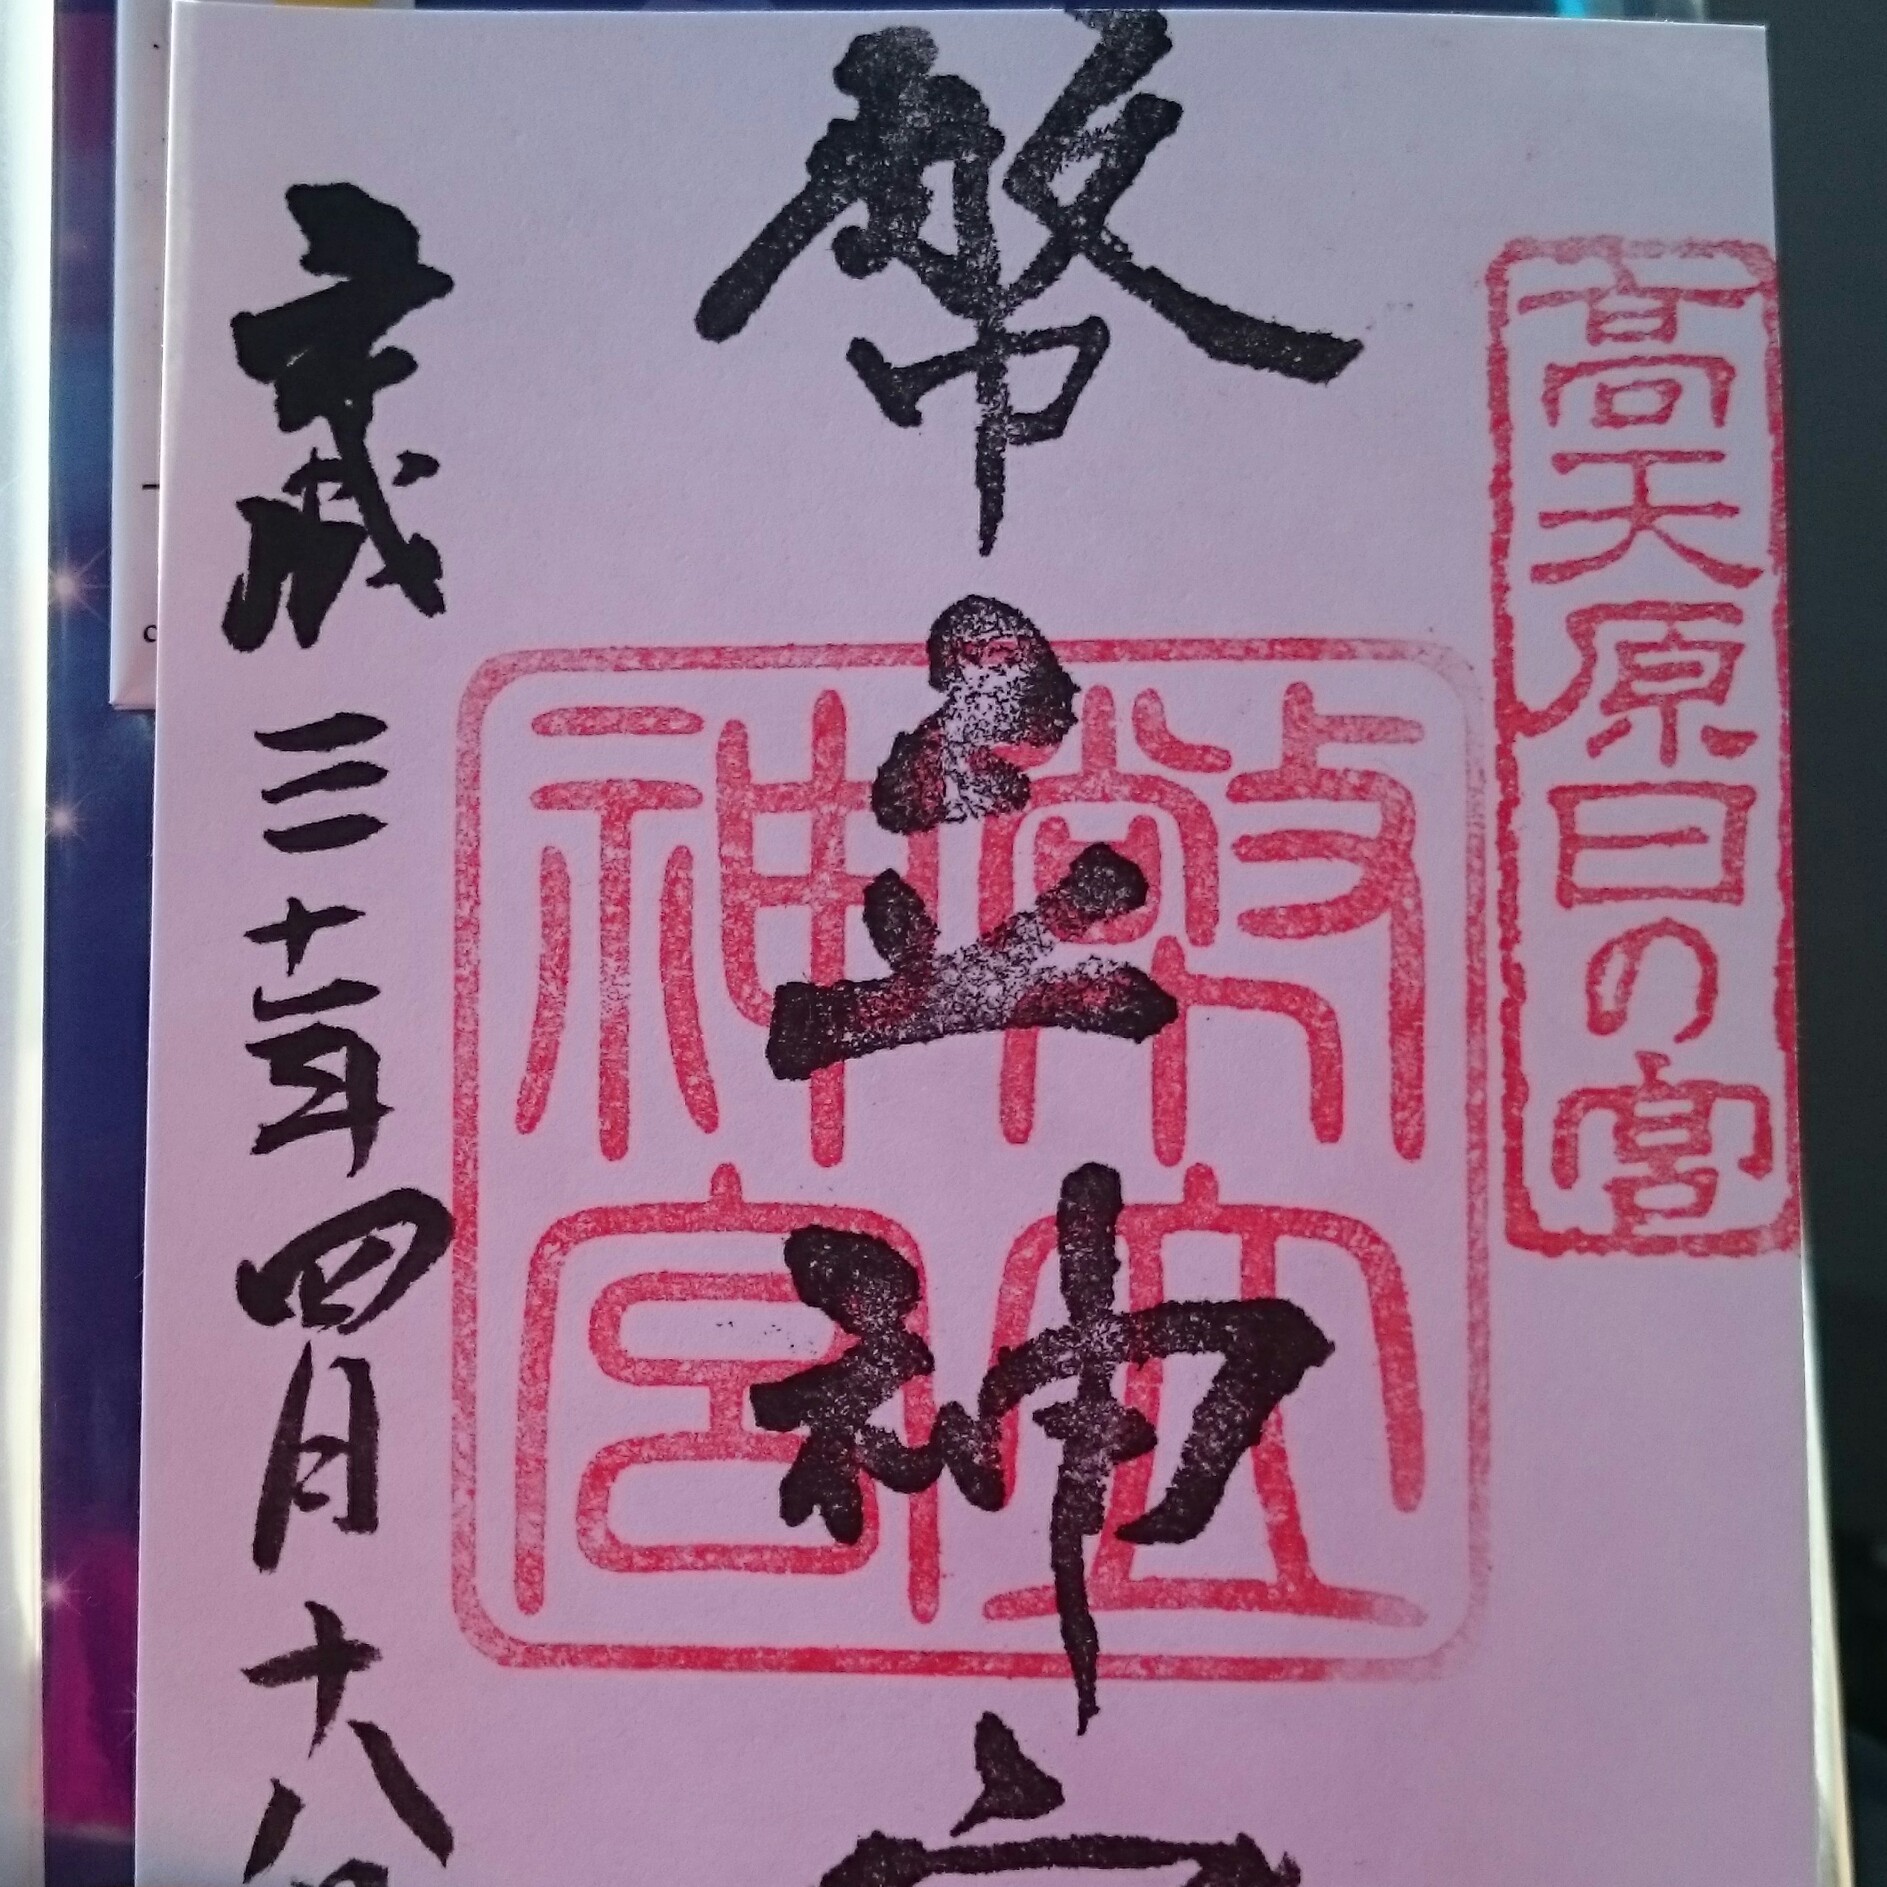 高天原日の宮
幣立神宮
幣立神宮
平成三十一年四月十八日